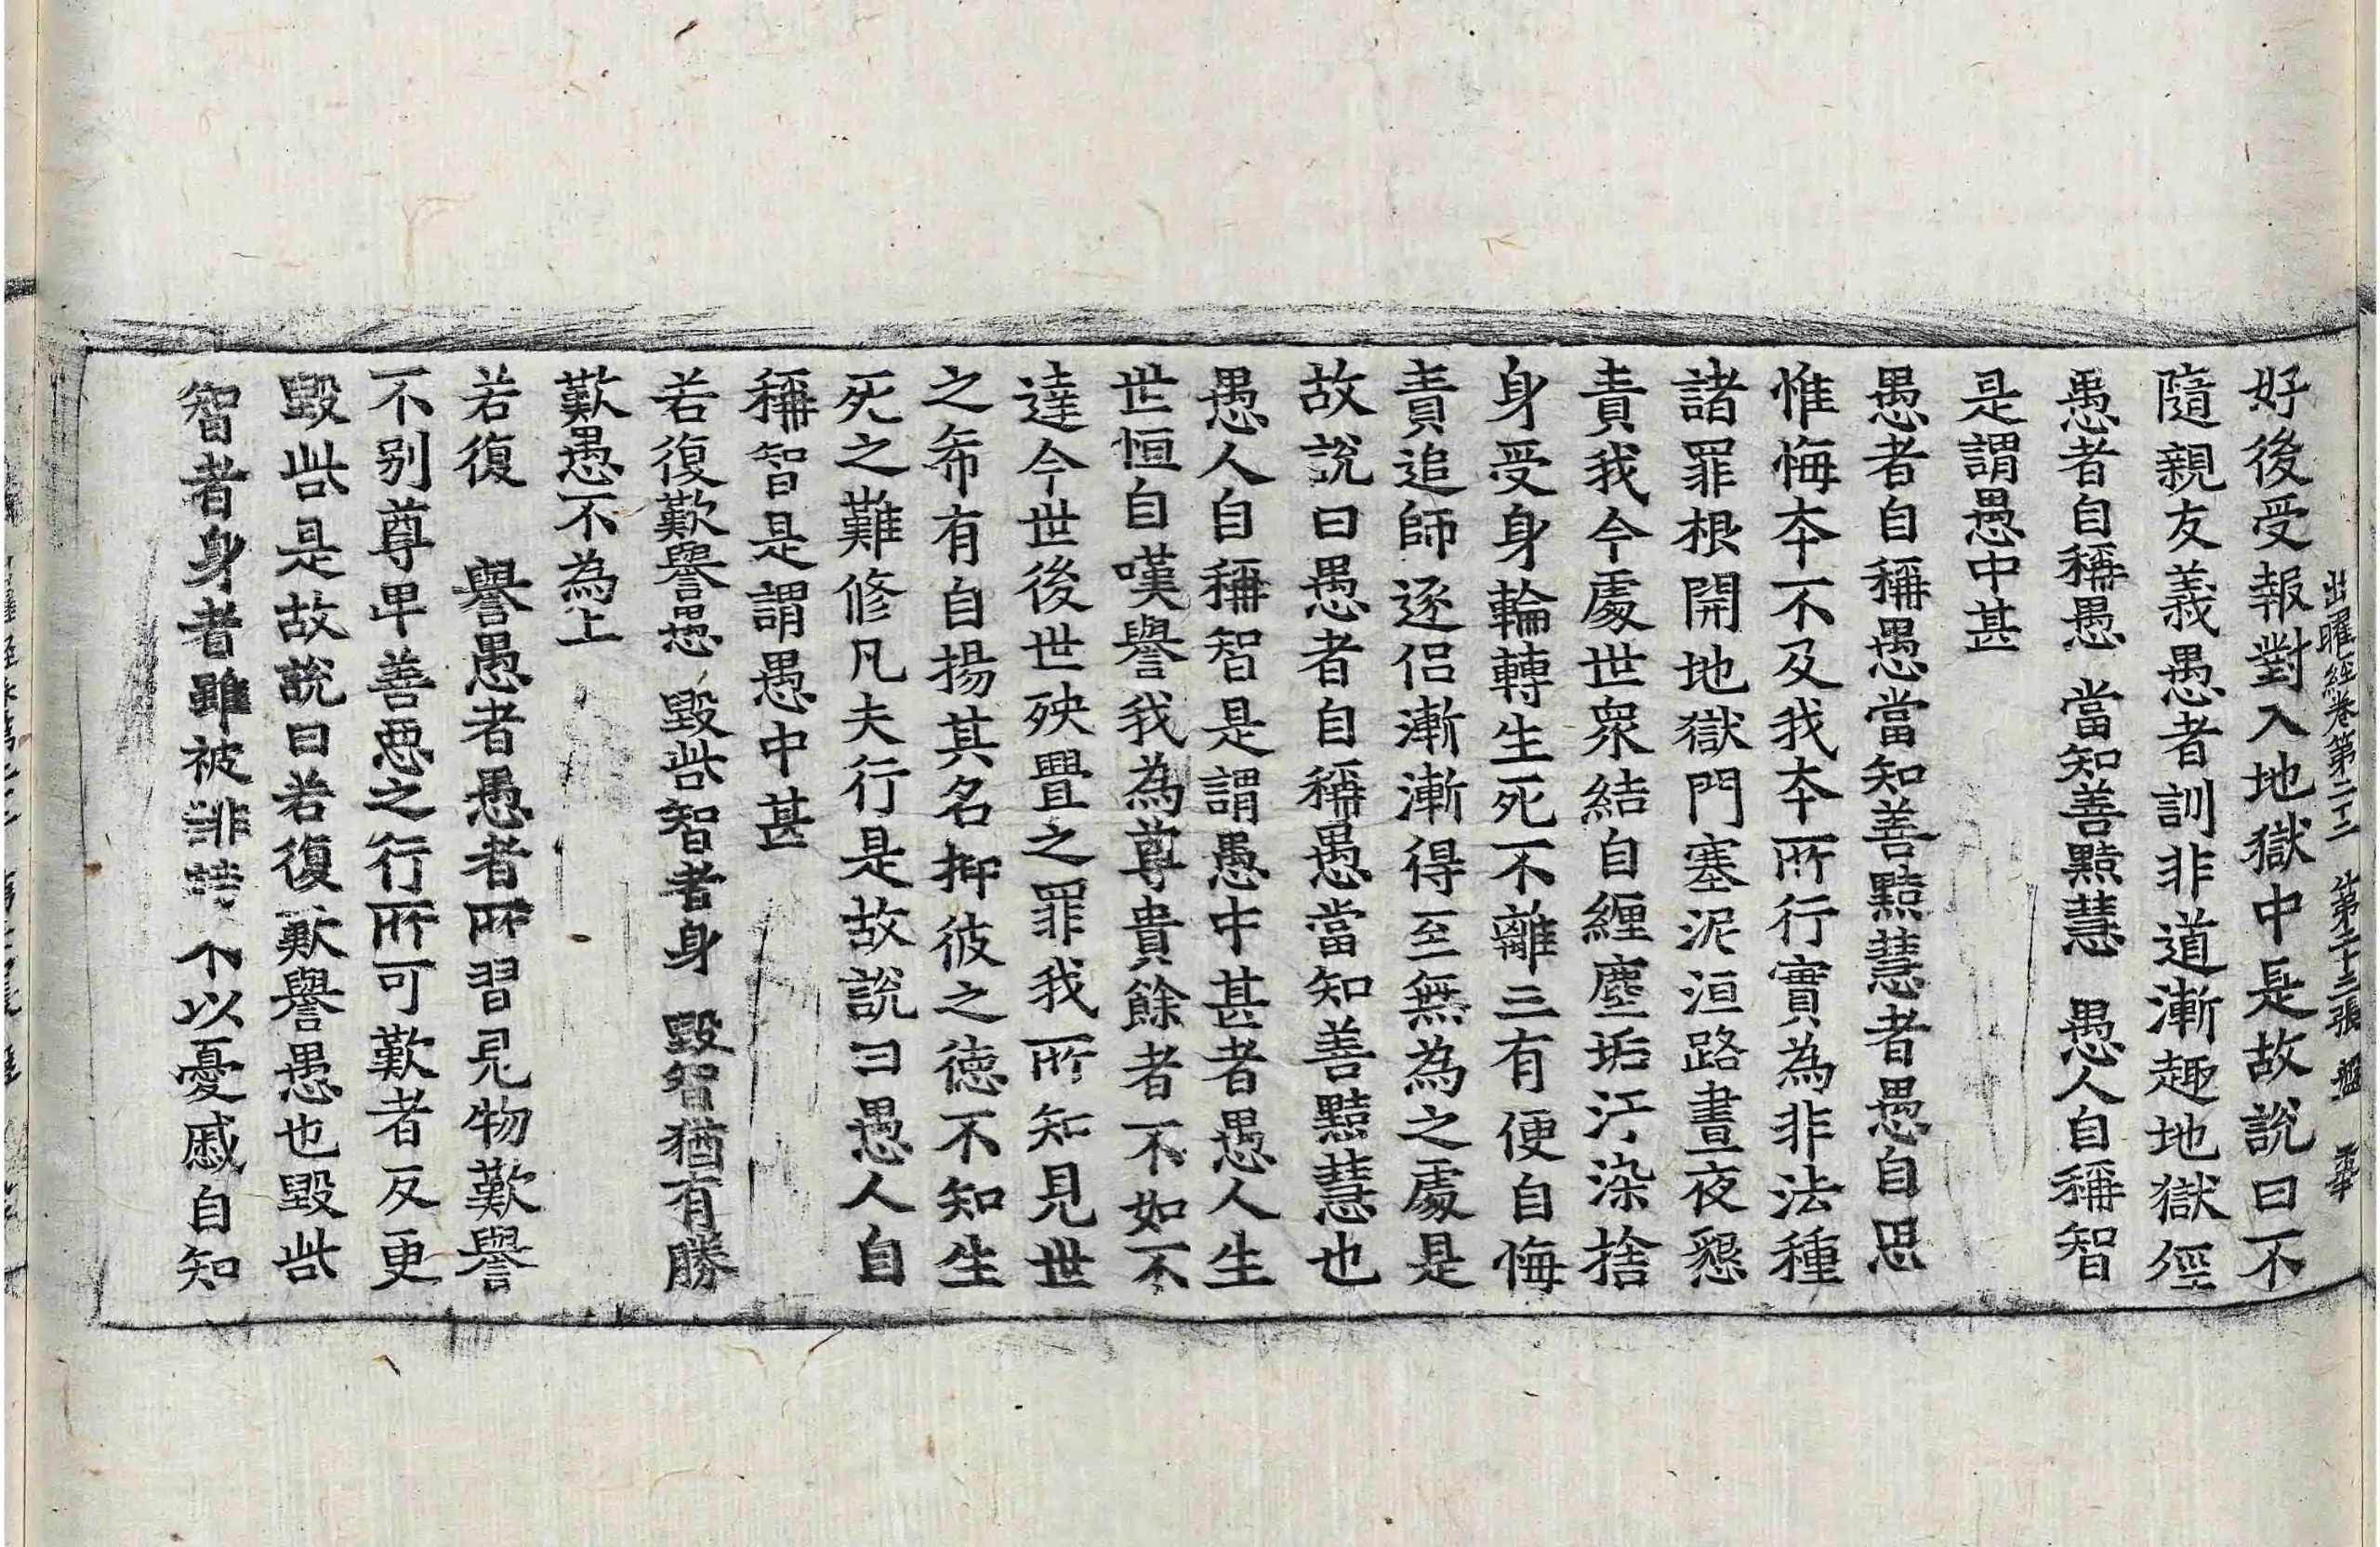 出曜經卷第二十二 第二十三張 盤
好後受報對入地獄中是故說曰不
隨親友義愚者訓非道漸趣地獄徑
愚者自稱愚 當知善黠慧 愚人自稱智
是謂愚中甚
愚者自稱愚當知善黠慧者愚自思
惟悔夲不及我夲所行實為非法種
諸罪根開地獄門塞泥洹路晝夜懇
責我今處世衆結自纏塵垢汙染捨
身受身輪轉生死不離三有便自悔
責追師逐侶漸漸得至無為之處是
故說曰愚者自稱愚當知善黠慧也
愚人自稱智是謂愚中甚者愚人生
世恒自嘆譽我為尊貴餘者不如不
達今世後世殃舋之罪我所知見世
之希有自揚其名抑彼之德不知生
死之難修凡夫行是故說曰愚人自
稱智是謂愚中甚
若復歎譽愚 毀呰智者身 毀智猶有勝
歎愚不為上
若復 譽愚者愚者所習見物歎譽
不別尊卑善惡之行所可歎者反更
毀呰是故說曰若復歎譽愚也毀呰
智者身者雖被誹謗不以憂慼自知